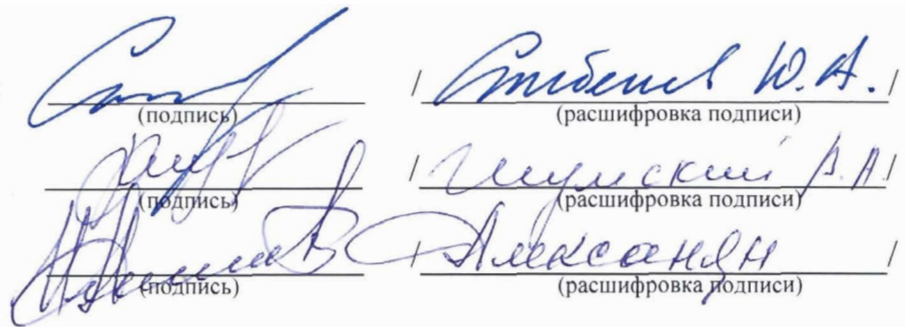 / Стибенов Ю.А. /
(подпись) (расшифровка подписи)
/ Шумский В.А. /
(подпись) (расшифровка подписи)
/ Алексанян /
(подпись) (расшифровка подписи)